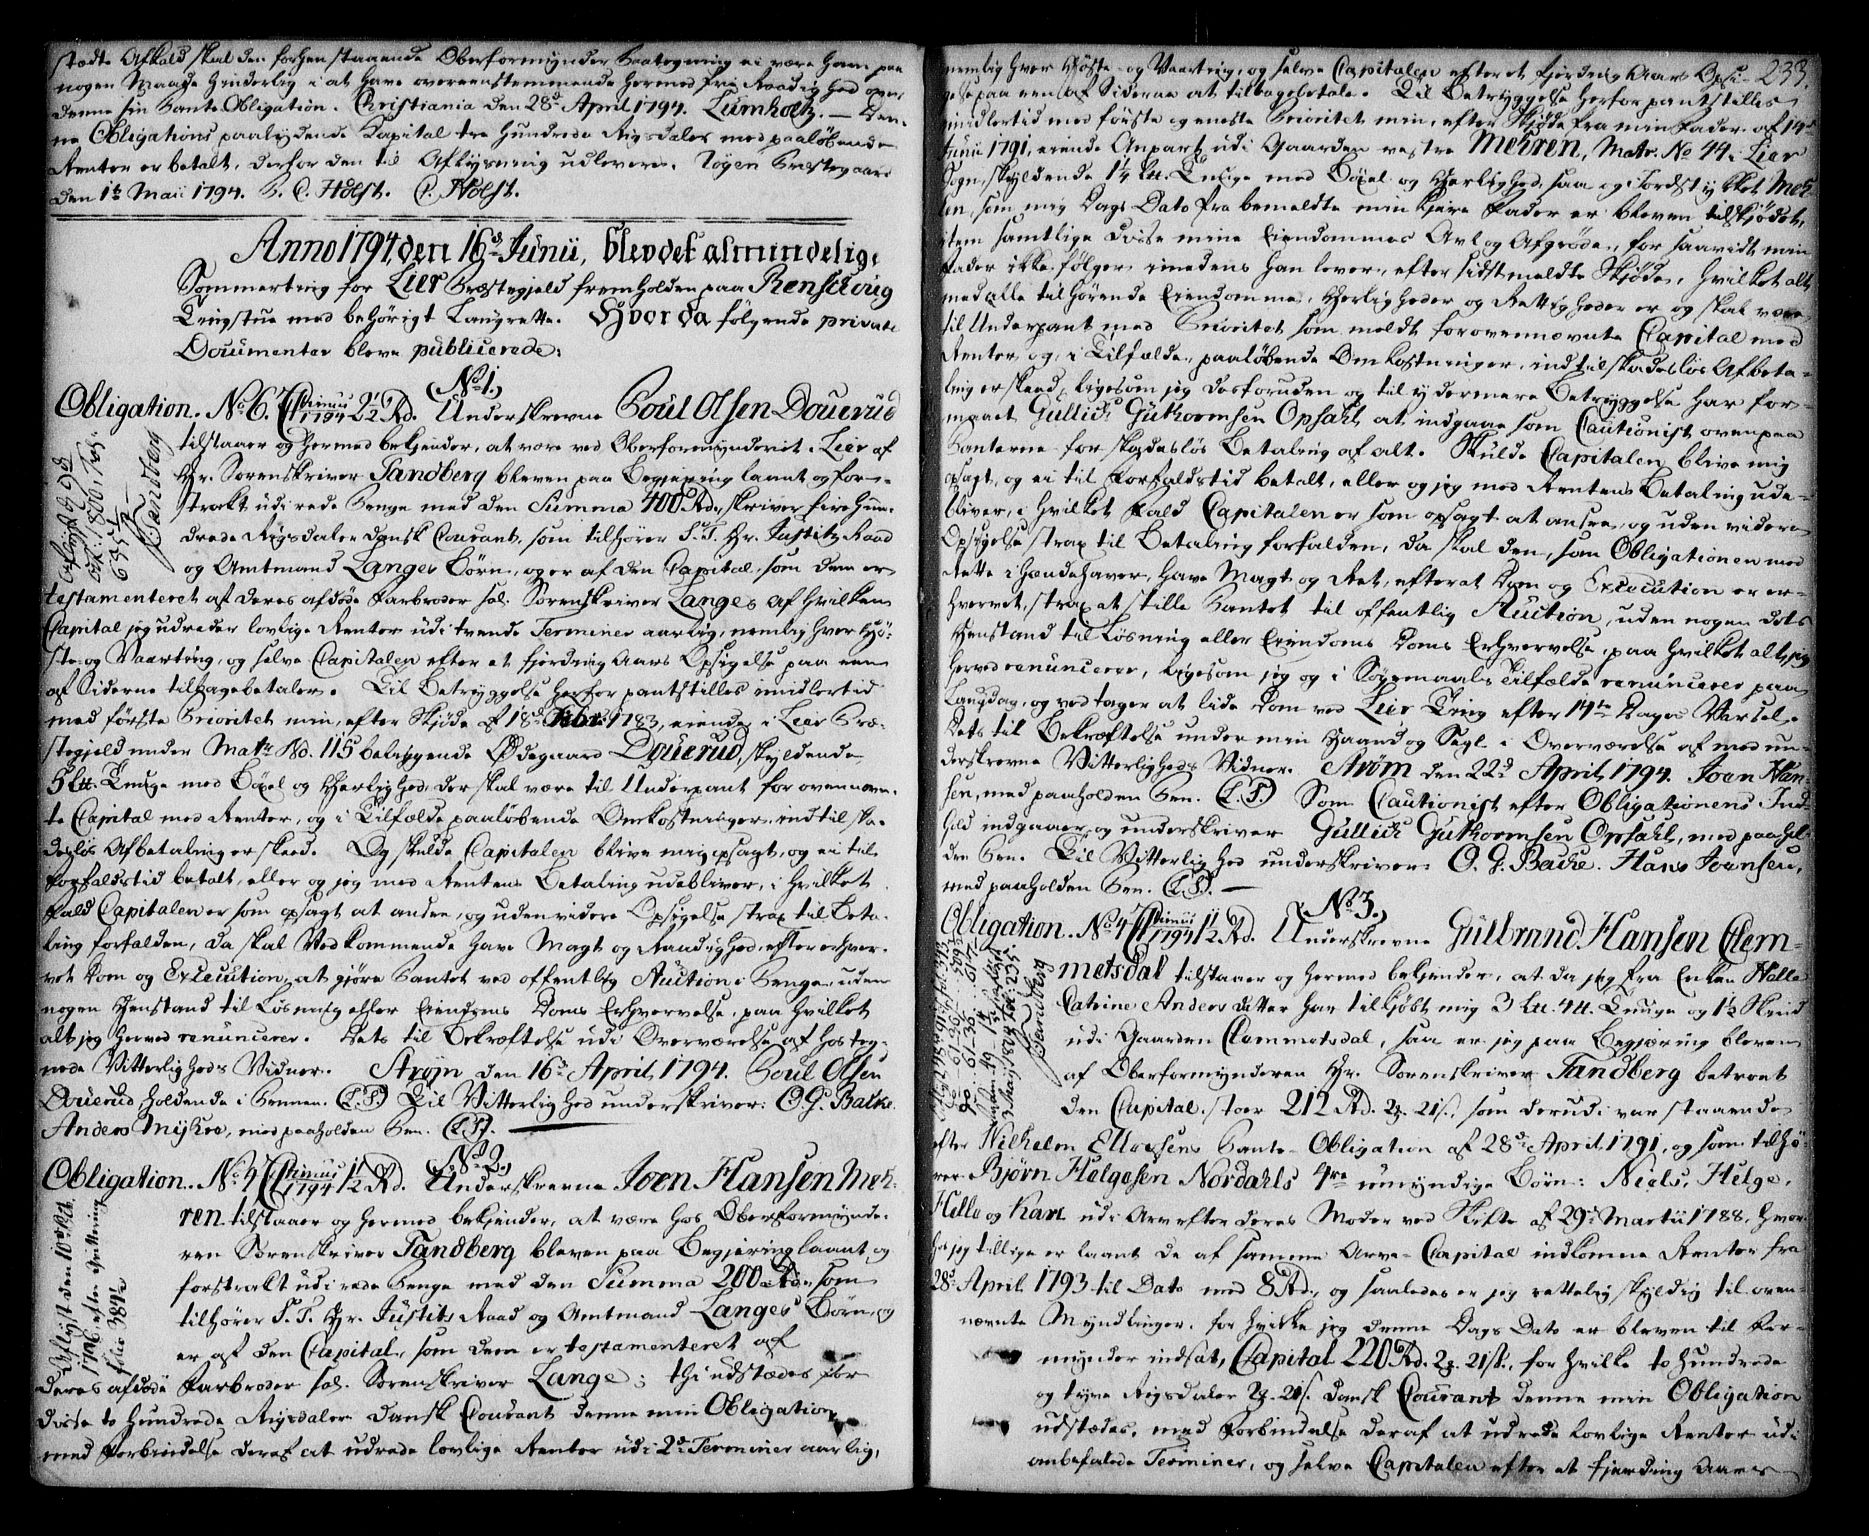 stædte Afkald skal den forhen staaende Oberformynder Paategning ei være ham paa
nogen Maade hinderlig i at have overeensstemmende hermed fri Raadighed over
denne sin Pante Obligation. Christiania den 28de April 1794. Lumholtz. — Den-
ne Obligations paalydende Capital tre Hundrede Rigsdaler med paaløbende
Renter er betalt, derfor den til Aflysning udleveres. Præstegaard
den 1te Maii 1794. P. C. Holst. C. Holst.
Anno 1794, den 16de Junii, blev det almindelige
Sommerting for Lier Præstegjeld fremholden paa Renschoug
Tingstue med behørigt Laugrette. Hvor da følgende private
Documenter bleve publicerede:
No 1.
Obligation. No 6. 1794 2½ Rd. Underskrevne Poul Olsen Douerud
tilstaaer og hermed bekjender, at være ved Oberformynderiet i Lier af
Hr. Sorenskriver Tandberg bleven paa Begjæring laant og for-
strakt udi rede Penge med den Summa 400 Rd., skriver fire Hun-
drede Rigsdaler Dansk Courant, som tilhører S. T. Hr. Justitz Raad
og Amtmand Langes Børn, og er af den Capital, som dem er
testamenteret af deres afdøde Farbroder sal. Sorenskriver Langes af hvilken
Capital jeg udreder lovlige Renter udi tvende Terminer aarlig, nemlig hver Hø-
ste- og Vaarting, og selve Capitalen efter et fjerding Aars Opsigelse paa een
af Siderne tilbagebetaler. Til Betryggelse herfor pantstilles imidlertid
med første Prioritet min, efter Skjøde af 18de Febr. 1783, eiende i Lier Præ-
stegjeld under Matr. No. 115 beliggende Ødegaard Douerud, skyldende
5 Lt. Tunge med Bøxel og Herlighed, der skal være til Underpant for ovennævn-
te Capital med Renter, og i Tilfælde paaløbende Omkostninger, indtil ska-
desløs Afbetaling er skeed. Og skulde Capitalen blive mig opsagt, og ei til
Forfaldstid betalt, eller og jeg med Rentens Betaling udebliver, i hvilket
Fald Capitalen er som opsagt at ansee, og uden videre Opsigelse strax til Beta-
ling forfalden, da skal Vedkommende have Magt og Raadighed, efter erhver-
vet Dom og Execution, at gjøre Pantet ved offentlig Auction i Penge, uden
nogen Henstand til Løsning eller Eiendoms Doms Erhvervelse, paa hvilket
alt jeg herved renuncerer. Dets til Bekræftelse udi Overværelse af hosteg-
nede Vitterligheds Vidner. Strøm den 16de April 1794. Poul Olsen
Douerud holdende i Pennen. (L.S.) Til Vitterlighed underskriver: O. G. Backe.
Anders Myhre, med paaholden Pen. (L.S.)
Aflyst d. 9d
Oct. 1801,
635
Tandberg
No 2.
Obligation. No 4 1794 1½ Rd. Underskrevne Joen Hansen Meh-
ren tilstaaer og hermed bekjender, at være hos Oberformynde-
ren Sorenskriver Tandberg bleven paa Begjæring laant og
forstrakt udi rede Penge med den Summa 200 Rd., som
tilhører S. T. Hr. Justits Raad og Amtmand Langes Børn, og
er af den Capital, som dem er testamenteret af
deres afdøde Farbroder sal. Sorenskriver Lange; thi udstædes for
disse to Hundrede Rigsdaler Dansk Courant denne min Obligation,
med Forbindelse deraf at udrede lovlige Renter udi 2de Terminer aarlig,
Aflyst den 10de
1796, efter Qvittering
folio 384
233.
nemlig hver Høste- og Vaarting, og selve Capitalen efter et fjerding Aars Opsi-
gelse paa een af Siderne at tilbagebetale. Til Betryggelse herfor pantstilles
imidlertid med første og eneste Prioritet min, efter Skjøde fra min Fader af 14de
Junii 1791, eiende Anpart udi Gaarden vestre Mehren, Matr. No 44 i Lier
Sogn, skyldende 1¼ Lt. Tunge med Bøxel og Herlighed, saa og Jordstykket Meh-
len, som mig Dags Dato fra bemeldte min kjære Fader er bleven tilskjødet,
item samtlige disse mine Eiendommes Avl og Afgrøde, for saavidt min
Fader ikke følger imedens han lever, efter sidstmeldte Skjøde, hvilket alt
med alle tilhørende Eiendomme, Herligheder og Rettigheder er og skal være
til Underpant med Prioritet som meldt for ovennævnte Capital med
Renter, og, i Tilfælde, paaløbende Omkostninger, indtil skadesløs Afbeta-
ling er skeed, ligesom jeg desforuden og til ydermere Betryggelse har for-
maaet Gullich Guthormsen Opsahl at indgaae som Cautionist ovenpaa
Panterne for skadesløs Betaling af alt. Skulde Capitalen blive mig
opsagt, og ei til Forfaldstid betalt, eller og jeg med Rentens Betaling ude-
bliver, i hvilket Fald Capitalen er som opsagt at ansee, og uden videre
Opsigelse strax til Betaling forfalden, da skal den, som Obligationen med
Rette i Hændehaver, have Magt og Ret, efter at Dom og Execution er er-
hvervet, strax at stille Pantet til offentlig Auction, uden nogen dets
Henstand til Løsning eller Eiendoms Doms Erhvervelse, paa hvilket alt jeg
herved renuncerer, ligesom jeg og i Søgemaals Tilfælde renuncerer paa
Laugdag, og vedtager at lide Dom ved Lier Ting efter 14te Dages Varsel.
Dets til Bekræftelse under min Haand og Segl i Overværelse af med un-
derskrevne Vitterligheds Vidner. Strøm den 22de April 1794. Joen Han-
sen, med paaholden Pen. (L.S.) Som Cautionist efter Obligationens Ind-
hold indgaaer og underskriver Gullich Guthormsen Opsahl, med paahol-
den Pen. Til Vitterlighed underskriver: O. G. Backe. Hans Joensen,
med paaholden Pen. (L.S.) —
No 3.
Obligation. No 4 1794 1½ Rd. Underskrevne Gulbrand Hansen Clem-
metsdal tilstaaer og hermed bekjender, at da jeg fra Enken Malle
Catrine Anders Datter har tilkjøbt mig 3 Lt. 4 t. Tunge og 1½ Skind
udi Gaarden Clemmetsdal, saa er jeg paa Begjæring bleven
af Oberformynderen Hr. Sorenskriver Tandberg betroet
den Capital, stor 212 Rd. 2 . 21 s., som derudi var staaende
efter Wilhelm Ellevsens Pante-Obligation af 28de April 1791, og som tilhø-
rer Bjørn Helgesen Nordahls 4re umyndige Børn: Niels, Helge,
Helle og Kari udi Arv efter deres Moder ved Skifte af 29de Martii 1788, hvor-
hos jeg tillige er laant de af samme Arve-Capital indkomne Renter fra
28de April 1793 til Dato med 8 Rd., og saaledes er jeg rettelig skyldig til oven-
nævnte Myndlinger, for hvilke jeg denne Dags Dato er bleven til For-
mynder indsat, Capital 220 Rd. 2 . 21 s., for hvilke to Hundrede
og tyve Rigsdaler 2 . 21 s. Dansk Courant denne min Obligation
udstædes, med Forbindelse deraf at udrede lovlige Renter udi
anbefalede Terminer, og selve Capitalen efter et fjerding Aars
Tandberg